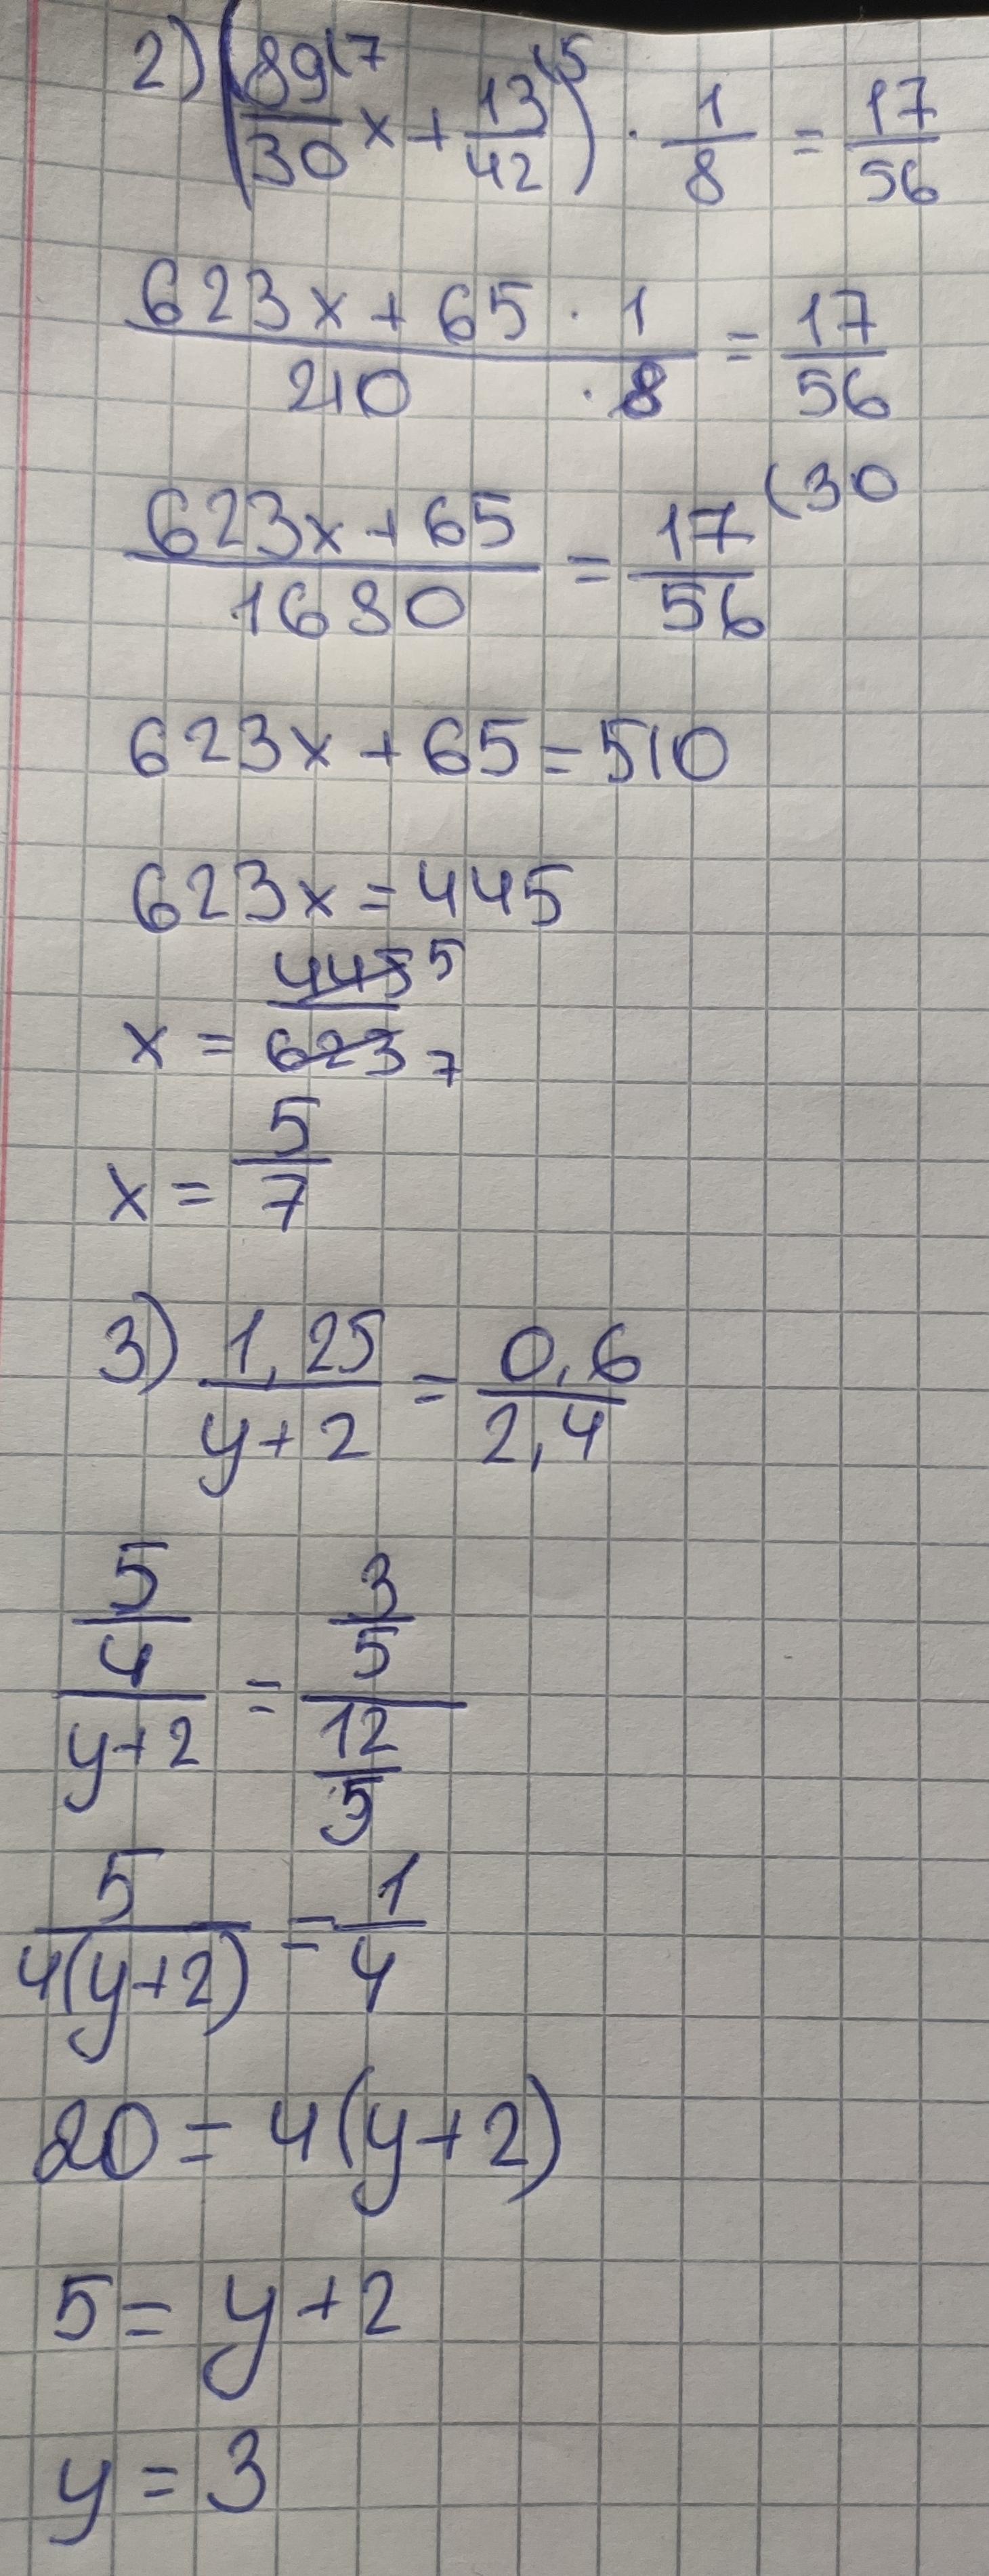 2) (89(7/30 x + 13(5/42) · 1/8 = 17/56
623x + 65 · 1/210 · 8 = 17/56
623x + 65/1680 = 17(30/56
623x + 65 = 510
623x = 445
x = 445 5/623 7
x = 5/7
3) 1,25/y+2 = 0,6/2,4
5/4/y+2 = 3/5/12/5
5/4(y+2) = 1/4
20 = 4(y+2)
5 = y+2
y = 3